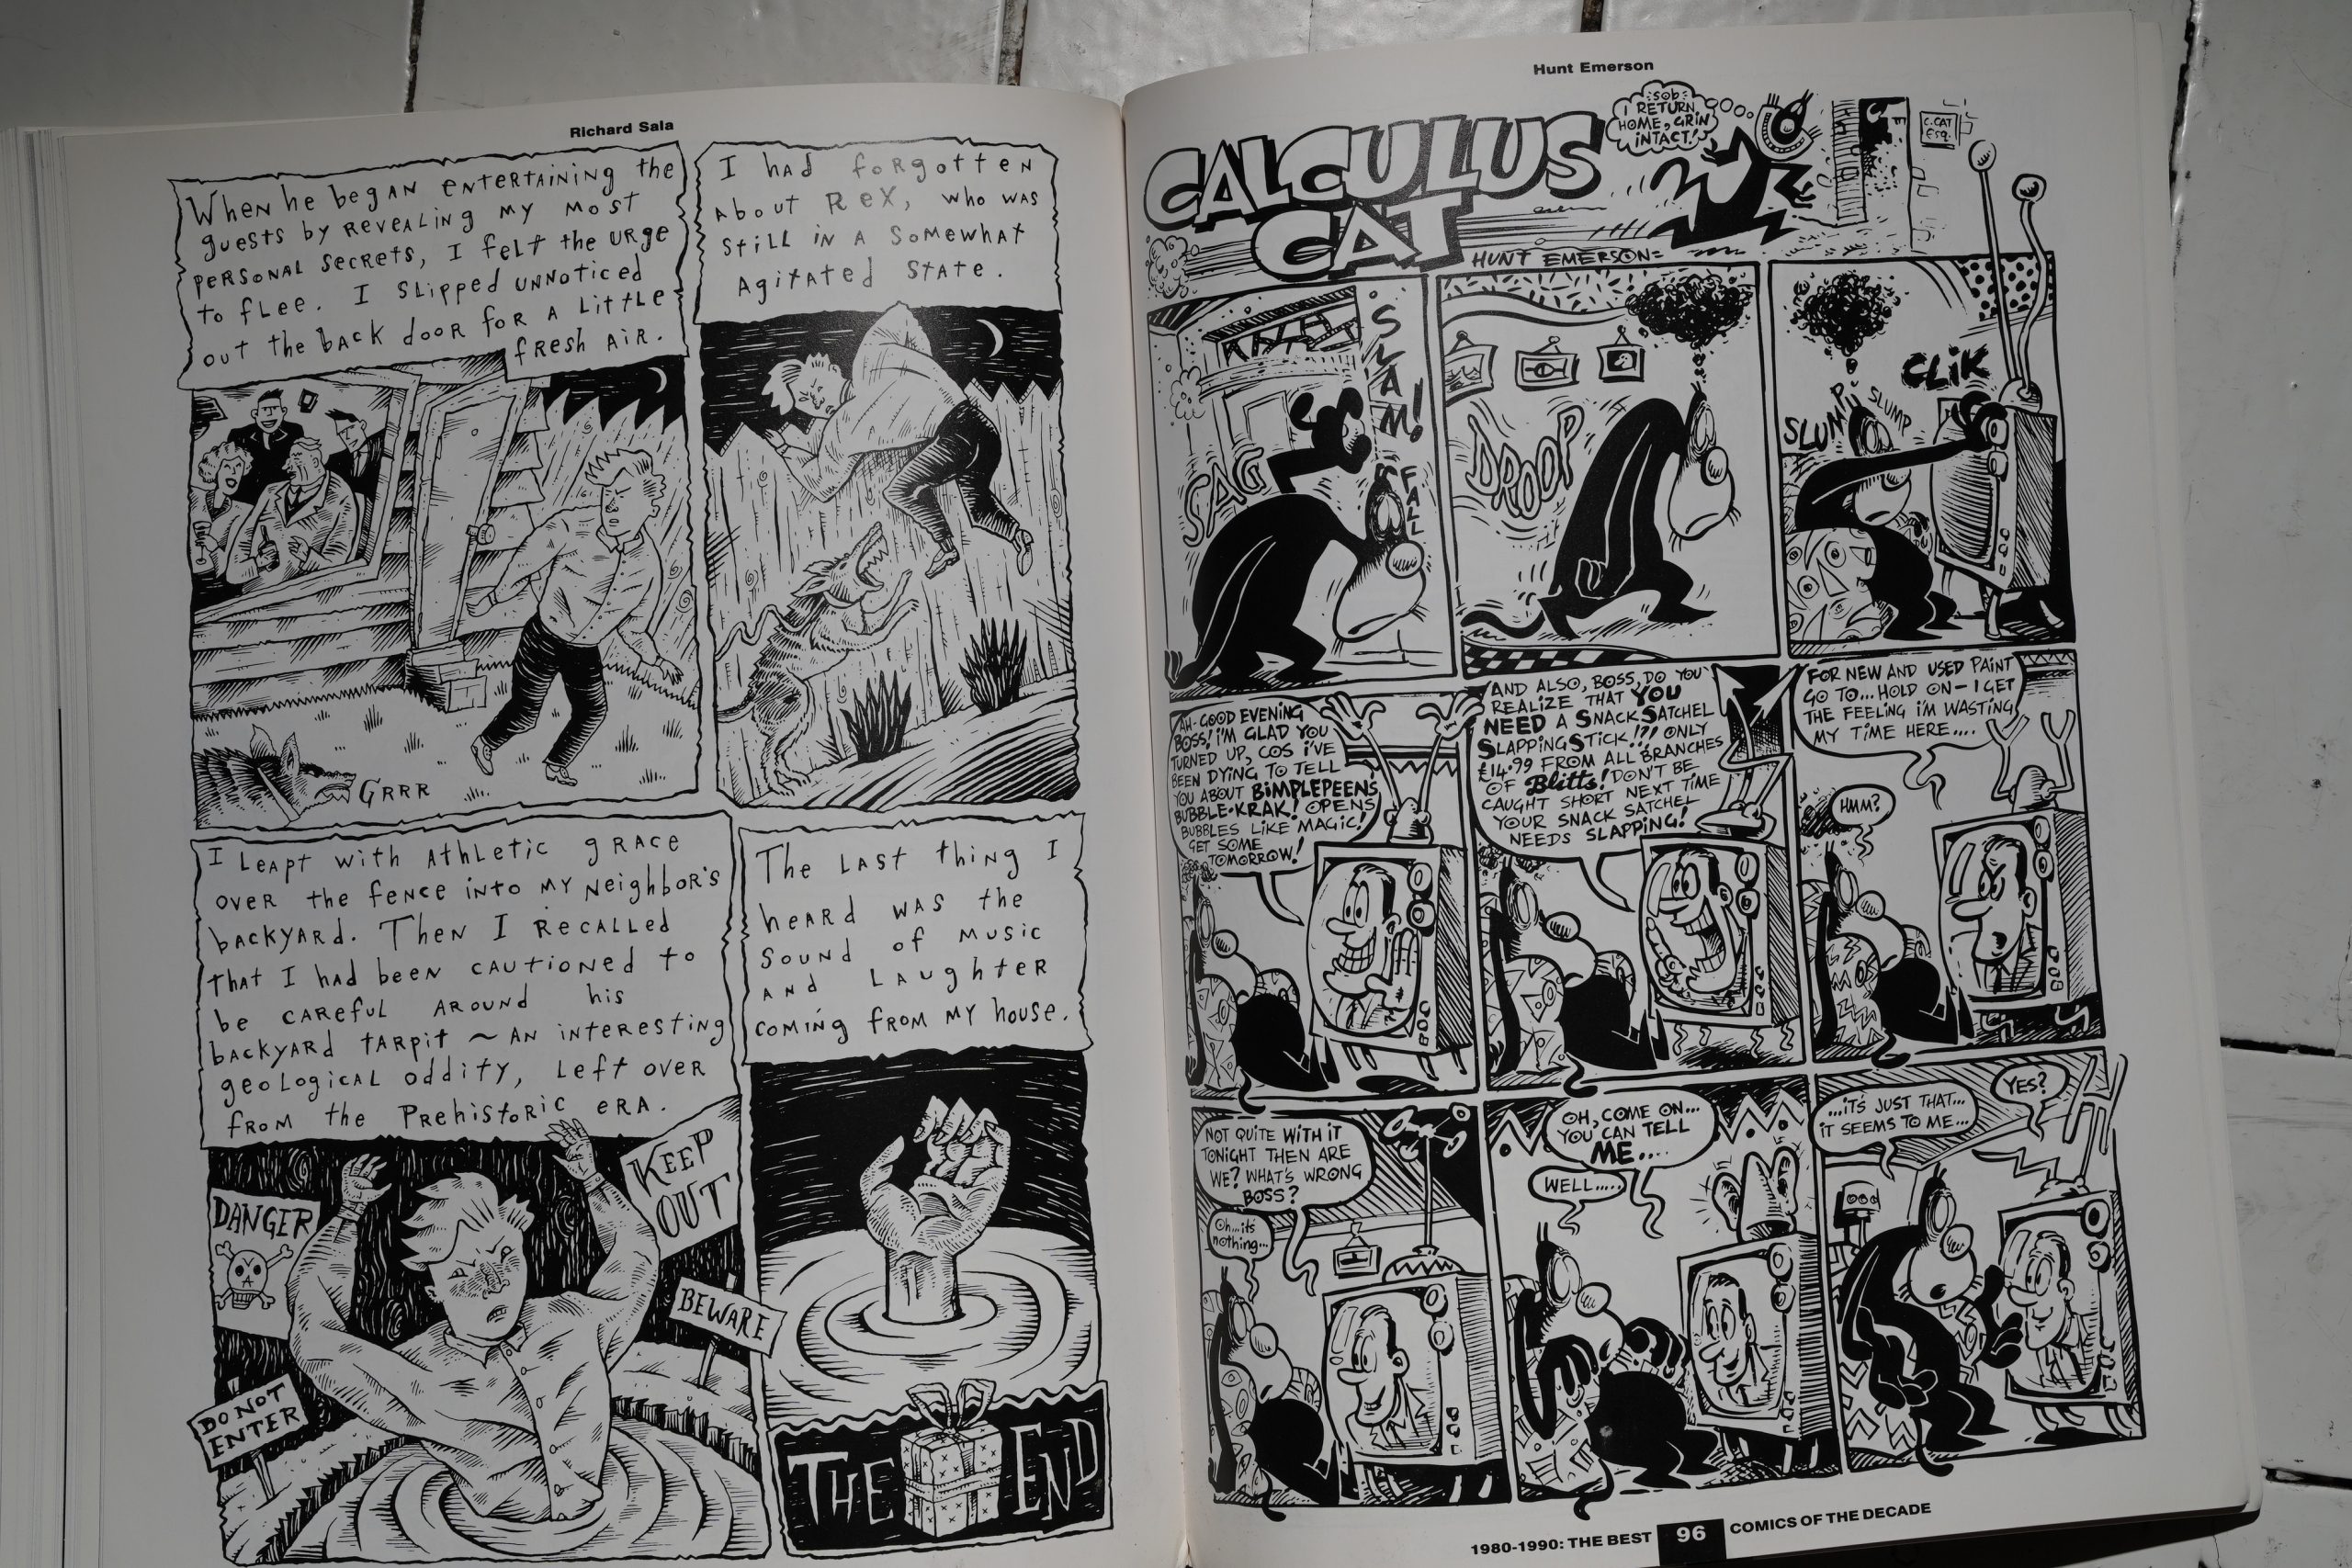 Richard Sala
When he began entertaining the
guests by revealing my most
personal secrets, I felt the urge
to flee. I slipped unnoticed
out the back door for a little
fresh air.
GRRR
I had forgotten
about Rex, who was
still in a somewhat
agitated state.
I leapt with athletic grace
over the fence into my neighbor's
backyard. Then I recalled
that I had been cautioned to
be careful around his
backyard tarpit ~ an interesting
geological oddity, left over
from the prehistoric era.
DANGER
KEEP
OUT
BEWARE
DO NOT
ENTER
The last thing I
heard was the
sound of music
and laughter
coming from my house.
THE END
Hunt Emerson
CALCULUS
CAT
HUNT EMERSON
=SOB=
I RETURN
HOME, GRIN
INTACT!
C.CAT
ESQ.
SLAM!
SAG
FALL
DROOP
SLUMP
SLUMP
CLIK
AH-GOOD EVENING
BOSS! I'M GLAD YOU
TURNED UP, COS I'VE
BEEN DYING TO TELL
YOU ABOUT BIMPLEPEEN'S
BUBBLE-KRAK! OPENS
BUBBLES LIKE MAGIC!
GET SOME
TOMORROW!
AND ALSO, BOSS, DO YOU
REALIZE THAT YOU
NEED A SNACK SATCHEL
SLAPPING STICK!?! ONLY
£14.99 FROM ALL BRANCHES
OF Blitts! DON'T BE
CAUGHT SHORT NEXT TIME
YOUR SNACK SATCHEL
NEEDS SLAPPING!
FOR NEW AND USED PAINT
GO TO... HOLD ON - I GET
THE FEELING I'M WASTING
MY TIME HERE....
HMM?
NOT QUITE WITH IT
TONIGHT THEN ARE
WE? WHAT'S WRONG
BOSS?
Oh...it's
nothing...
OH, COME ON...
YOU CAN TELL
ME....
WELL.....
...IT'S JUST THAT...
IT SEEMS TO ME...
YES?
1980-1990: THE BEST 96 COMICS OF THE DECADE